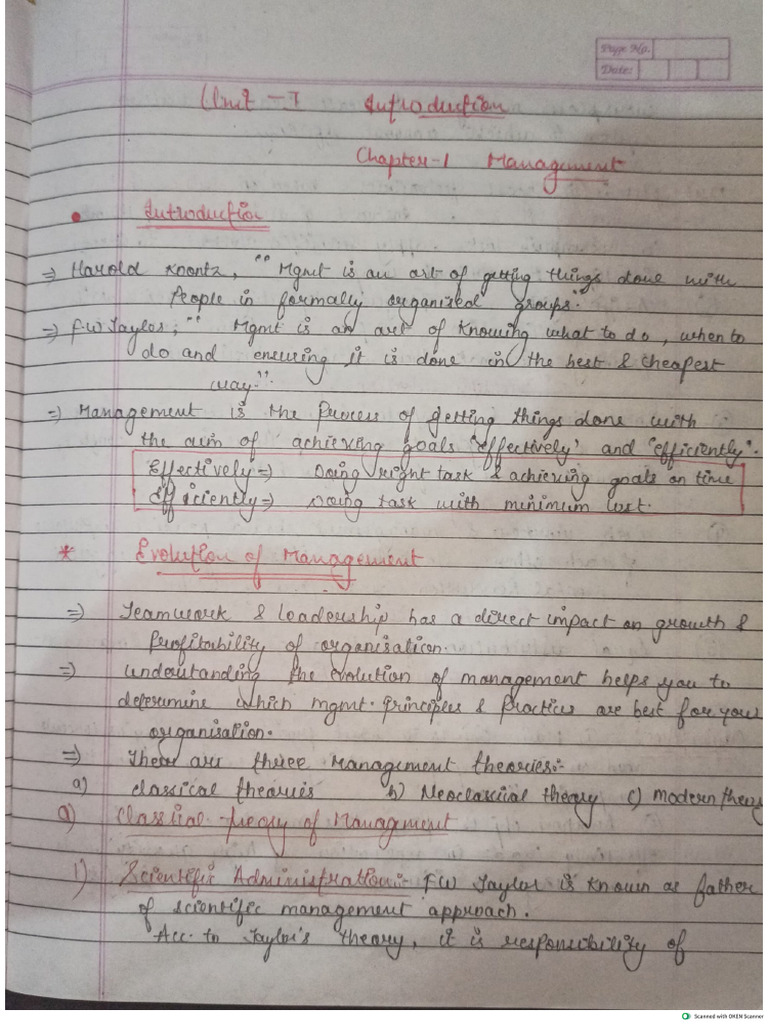 Page No.
Date:
Unit - I Introduction
Chapter-1 Management
• Introduction
⇒ Harold Knontz, "Mgmt is an art of getting things done with
People in formally organized groups."
⇒ F.W Taylor, "Mgmt is an art of Knowing what to do, when to
do and ensuring it is done in the best & cheapest
way."
⇒ Management is the Process of getting things done with
the aim of achieving goals 'effectively' and 'efficiently'.
Effectively ⇒ Doing right task & achieving goals on time
Efficiently ⇒ Doing task with minimum cost.
* Evolution of Management
⇒ Teamwork & leadership has a direct impact on growth &
Profitability of organisation.
⇒ understanding the evolution of management helps you to
determine which mgmt. Principles & Practices are best for your
organisation.
⇒ There are three Management theories:-
a) classical theories b) Neoclassical theory c) modern theory
a) Classical theory of Management
1) Scientific Administration:- F.W Taylor is known as father
of scientific management approach.
Acc. to Taylor's theory, it is responsibility of
Scanned with OKEN Scanner